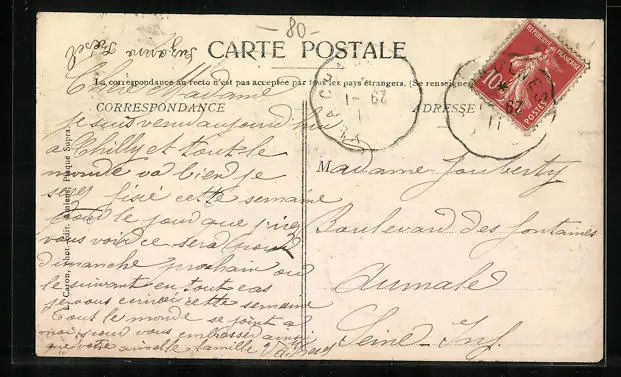 - 80 -
Suzanne
CARTE POSTALE
La correspondance au recto n'est pas acceptée par tous les pays étrangers. (Se renseigner
CORRESPONDANCE
ADRESSE
L. Caron, phot. édit. Amiens. Plaque Supra.
Chère Madame
je suis venu aujourd'hui
a Chilly et tout le
monde va bien je
serez fixé cette semaine
pour le jour que j'irez
vous voir ce sera pour
dimanche prochain ou
le suivant en tout cas
je vous cette semaine
tout le monde se joint a
moi pour vous embrasser ainsi
que votre aimable famille
Madame Jouberty
Boulevard des fontaines
Aumale
Seine-Inf
REPUBLIQUE FRANÇAISE
10c
POSTES
29-1
11
29
11